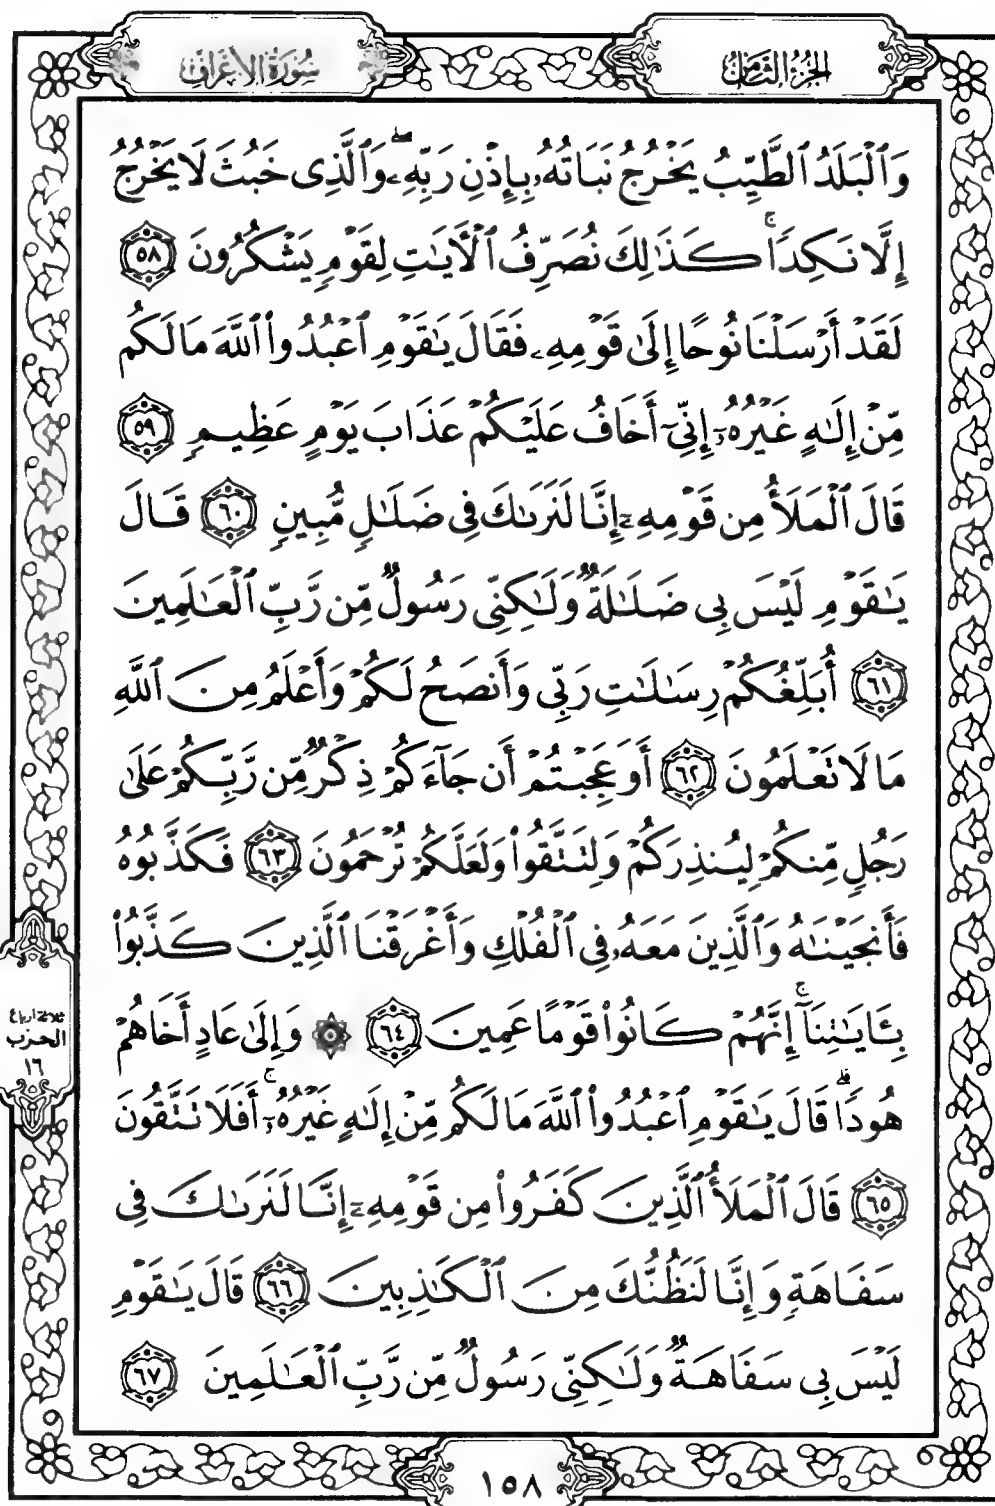 الجزء الثامن
سورة الأعراف
وَٱلْبَلَدُ ٱلطَّيِّبُ يَخْرُجُ نَبَاتُهُۥ بِإِذْنِ رَبِّهِۦ ۖ وَٱلَّذِى خَبُثَ لَا يَخْرُجُ
إِلَّا نَكِدًا ۚ كَذَٰلِكَ نُصَرِّفُ ٱلْـَٔايَٰتِ لِقَوْمٍ يَشْكُرُونَ ٥٨
لَقَدْ أَرْسَلْنَا نُوحًا إِلَىٰ قَوْمِهِۦ فَقَالَ يَٰقَوْمِ ٱعْبُدُوا۟ ٱللَّهَ مَا لَكُم
مِّنْ إِلَٰهٍ غَيْرُهُۥٓ إِنِّىٓ أَخَافُ عَلَيْكُمْ عَذَابَ يَوْمٍ عَظِيمٍ ٥٩
قَالَ ٱلْمَلَأُ مِن قَوْمِهِۦٓ إِنَّا لَنَرَىٰكَ فِى ضَلَٰلٍ مُّبِينٍ ٦٠ قَالَ
يَٰقَوْمِ لَيْسَ بِى ضَلَٰلَةٌ وَلَٰكِنِّى رَسُولٌ مِّن رَّبِّ ٱلْعَٰلَمِينَ
٦١ أُبَلِّغُكُمْ رِسَٰلَٰتِ رَبِّى وَأَنصَحُ لَكُمْ وَأَعْلَمُ مِنَ ٱللَّهِ
مَا لَا تَعْلَمُونَ ٦٢ أَوَعَجِبْتُمْ أَن جَآءَكُمْ ذِكْرٌ مِّن رَّبِّكُمْ عَلَىٰ
رَجُلٍ مِّنكُمْ لِيُنذِرَكُمْ وَلِتَتَّقُوا۟ وَلَعَلَّكُمْ تُرْحَمُونَ ٦٣ فَكَذَّبُوهُ
فَأَنجَيْنَٰهُ وَٱلَّذِينَ مَعَهُۥ فِى ٱلْفُلْكِ وَأَغْرَقْنَا ٱلَّذِينَ كَذَّبُوا۟
بِـَٔايَٰتِنَآ ۚ إِنَّهُمْ كَانُوا۟ قَوْمًا عَمِينَ ٦٤ ۞ وَإِلَىٰ عَادٍ أَخَاهُمْ
هُودًا ۗ قَالَ يَٰقَوْمِ ٱعْبُدُوا۟ ٱللَّهَ مَا لَكُم مِّنْ إِلَٰهٍ غَيْرُهُۥٓ ۚ أَفَلَا تَتَّقُونَ
٦٥ قَالَ ٱلْمَلَأُ ٱلَّذِينَ كَفَرُوا۟ مِن قَوْمِهِۦٓ إِنَّا لَنَرَىٰكَ فِى
سَفَاهَةٍ وَإِنَّا لَنَظُنُّكَ مِنَ ٱلْكَٰذِبِينَ ٦٦ قَالَ يَٰقَوْمِ
لَيْسَ بِى سَفَاهَةٌ وَلَٰكِنِّى رَسُولٌ مِّن رَّبِّ ٱلْعَٰلَمِينَ ٦٧
ثلاثة أرباع
الحزب
١٦
١٥٨